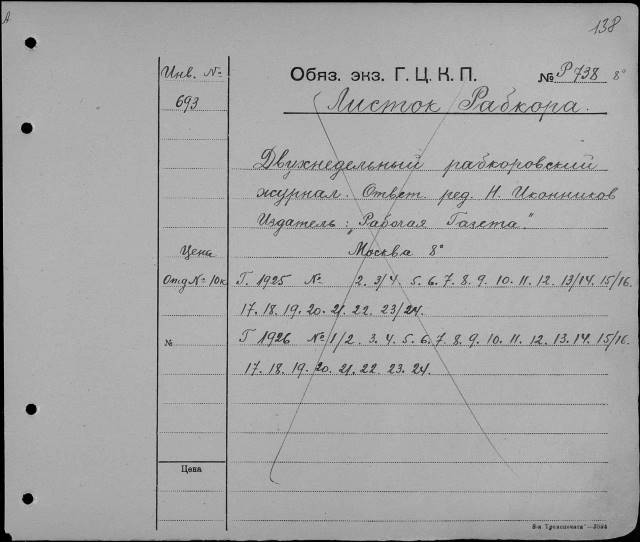 А
138
Инв. №
Обяз. экз. Г. Ц. К. П.
№ Р 738 8°
693
Листок Рабкора.
Двухнедельный рабкоровский
журнал. Ответ. ред. Н. Иконников
Издатель: „Рабочая Газета“.
Цена
Москва 8°
Отд № 10к
Г. 1925 № 2. 3/4. 5. 6. 7. 8. 9. 10. 11. 12. 13/14. 15/16.
17. 18. 19. 20. 21. 22. 23/24.
№
Г 1926 № 1/2. 3. 4. 5. 6. 7. 8. 9. 10. 11. 12. 13. 14. 15/16.
17. 18. 19. 20. 21. 22. 23. 24.
Цена